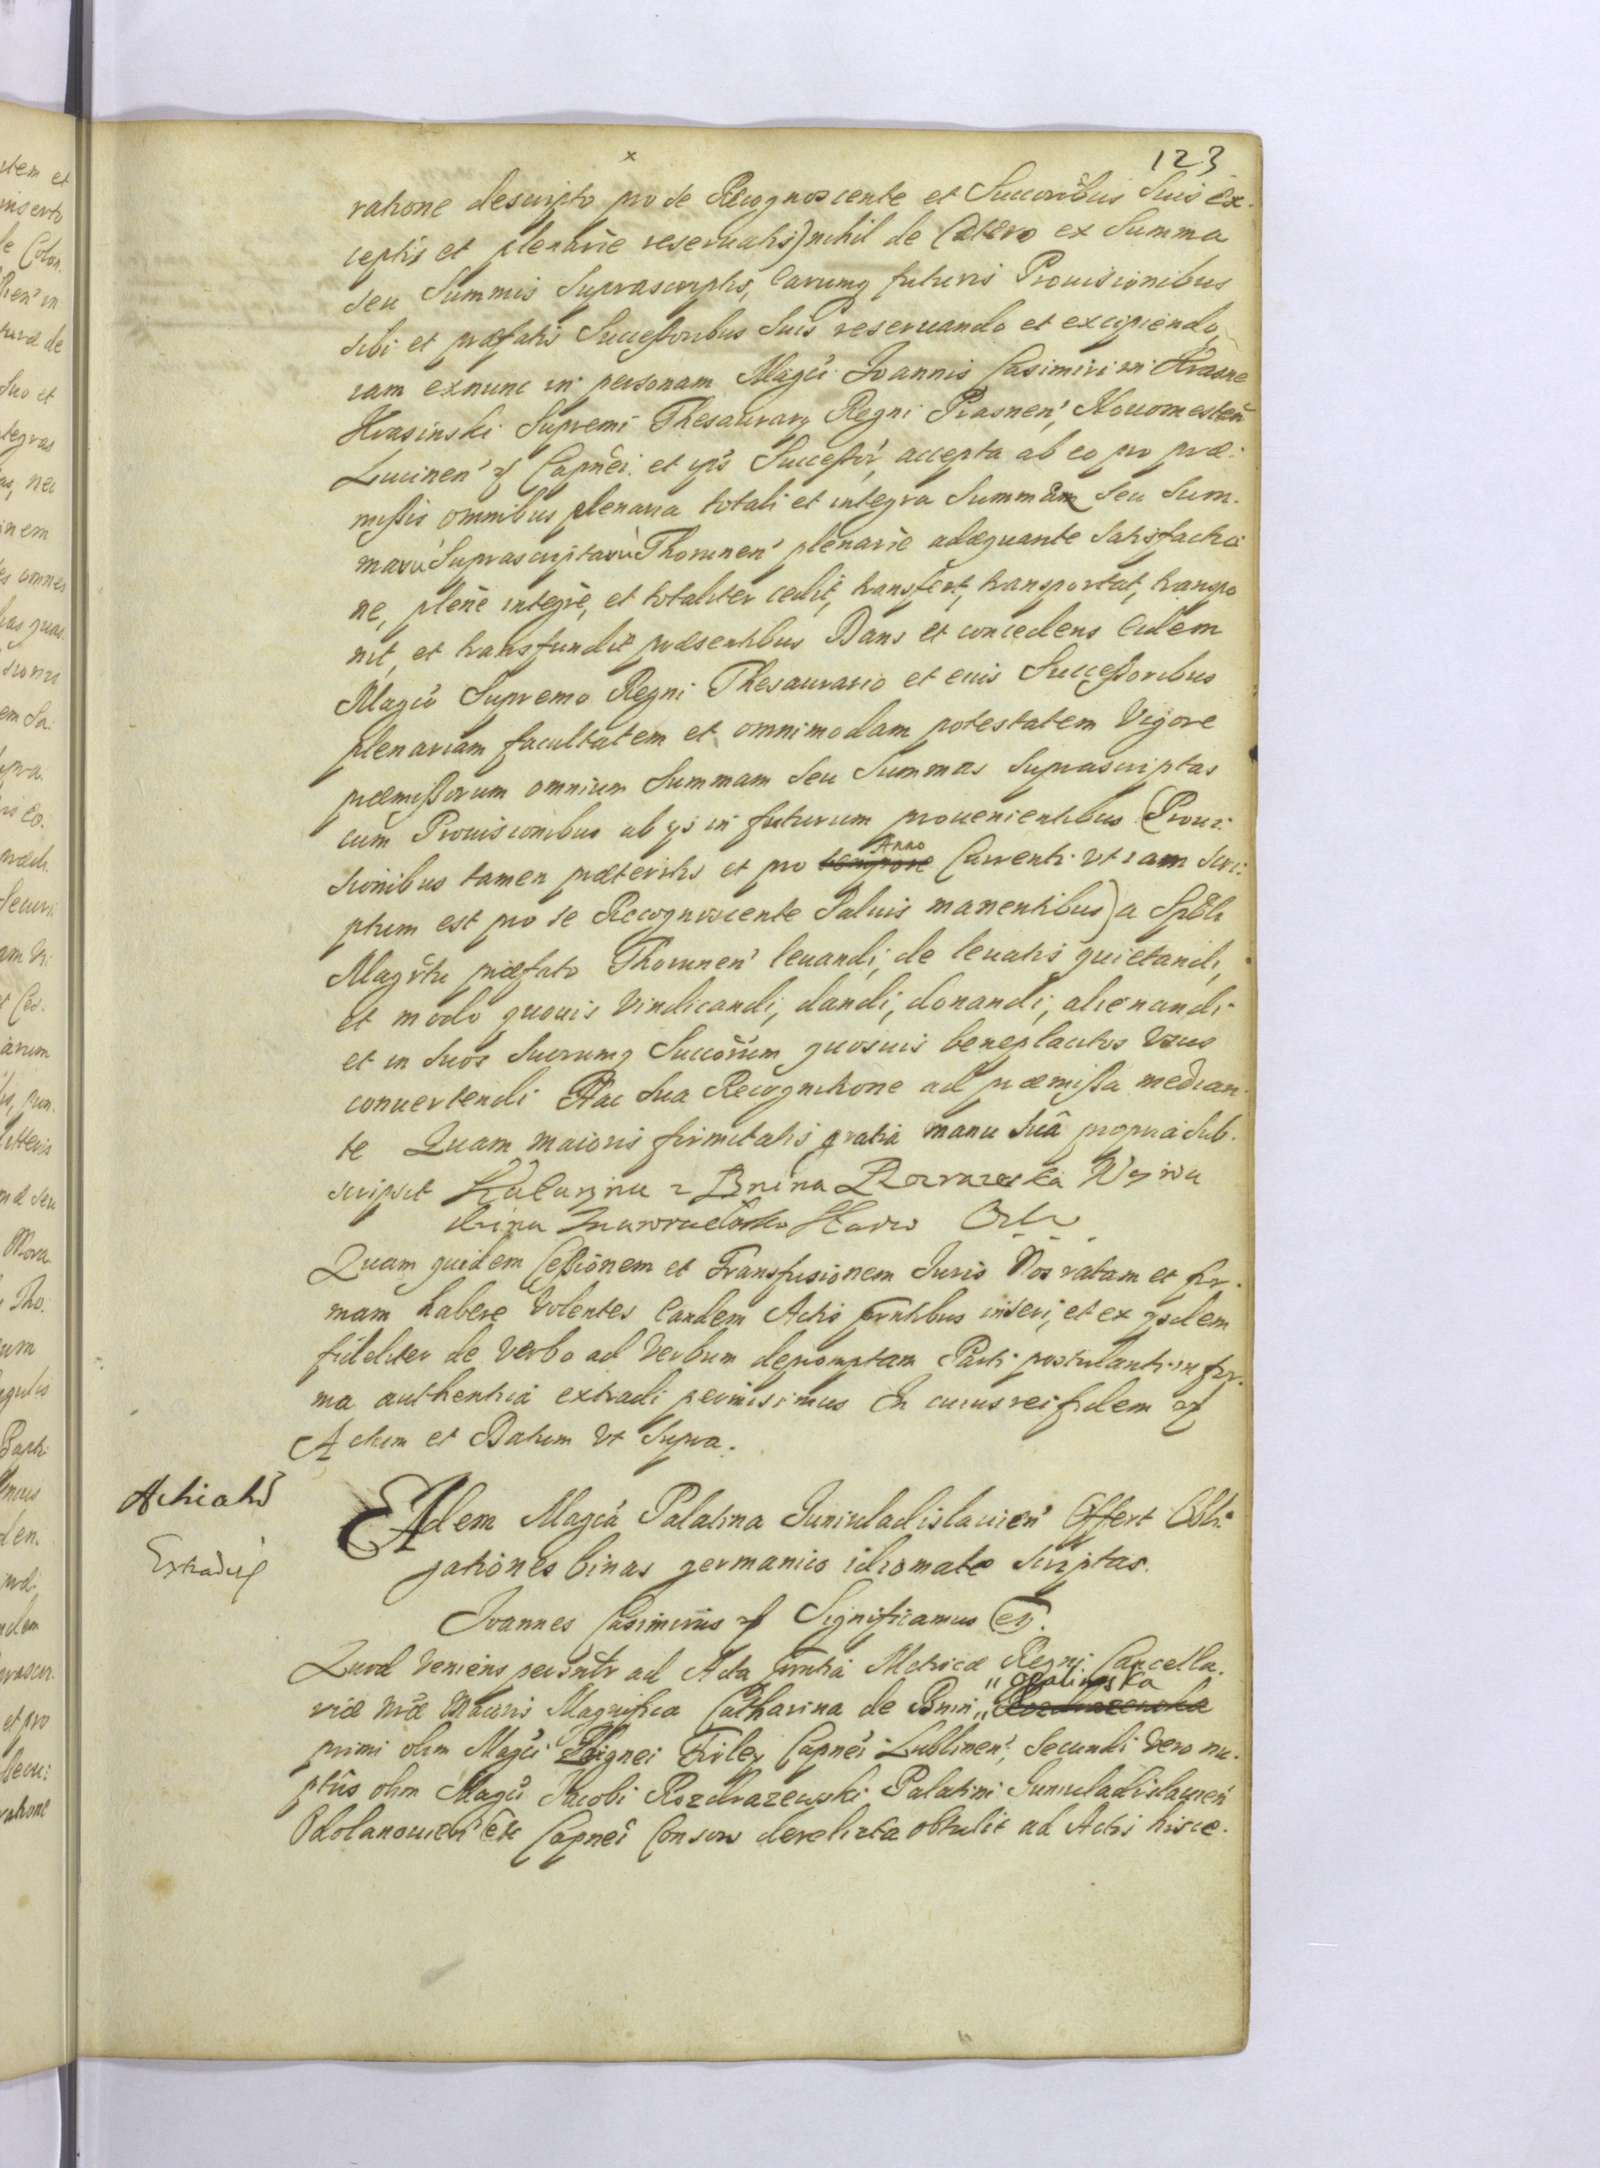 123
ratione descripto pro se Recognoscente et Succoribus Suis ex-
ceptis et plenarie reseruatis) nihil de Cætero ex Summa
seu Summis Suprascriptis, earumq futuris Prouisionibus
sibi et præfatis Successoribus Suis reseruando et excipiendo,
iam exnunc in personam Magci Joannis Casimiri in Krasne
Krasinski Supremi Thesaurarij Regni Prasnen', Nouomesten'
Lucinen' Capnei et ejus Successor', accepta ab eo pro præ-
missis omnibus plenaria totali et integra Summam seu Sum-
marū Suprascriptarū Thorunen' plenarie adæquante Satisfactio
ne, plene integre, et totaliter cedit, transfert, transportat, transpo
nit, et transfundit præsentibus Dans et concedens Eidem
Magco Supremo Regni Thesaurario et eius Successoribus
plenariam facultatem et omnimodam potestatem Vigore
præmissorum omnium Summam seu Summas Suprascriptas
cum Prouisionibus ab ijs in futurum prouenientibus (Proui-
sionibus tamen præteritis et pro tempore Anno Currenti vt iam scri-
ptum est pro se Recognoscente Saluis manentibus) a Spbli
Magrtu præfato Thorunen' leuandi, de leuatis quietandi,
et modo quouis Vindicandi, dandi, donandi, alienandi
et in suos suorumq Succorum quosuis beneplacitos Vsus
conuertendi Hac sua Recognitione ad præmissa median-
te Quam maioris firmitatis gratia manu suâ propria sub-
scripsit Katarzyna z Bnina
Quam quidem Cessionem et Transfusionem Juris Nos ratam et fir-
mam habere Volentes Eandem Actis prntibus inseri, et ex ijsdem
fideliter de Verbo ad Verbum depromptam Parti postulanti in for-
ma authentica extradi permisimus In cuius rei fidem
Actum et Datum vt supra.
Actiatio
Extradit
EAdem Magca Palatina Juniuladislauien' Offert Obli-
gationes binas germanico idiomate scriptas.
Joannes Casimirus Significamus
Quod Veniens persontr ad Acta prntia Metricæ Regni Cancella-
riæ nræ Maioris Magnifica Catharina de Bnin Opalinska Rozdrazewska
primi olim Magci Zbignei Firley Capnei Lublinen', Secundi Vero nu-
ptiis olim Magci Jacobi Rozdrazewski Palatini Juniuladislauien'
Odolanouien' etc Capnei Consors derelicta obtulit ad Actis hisce